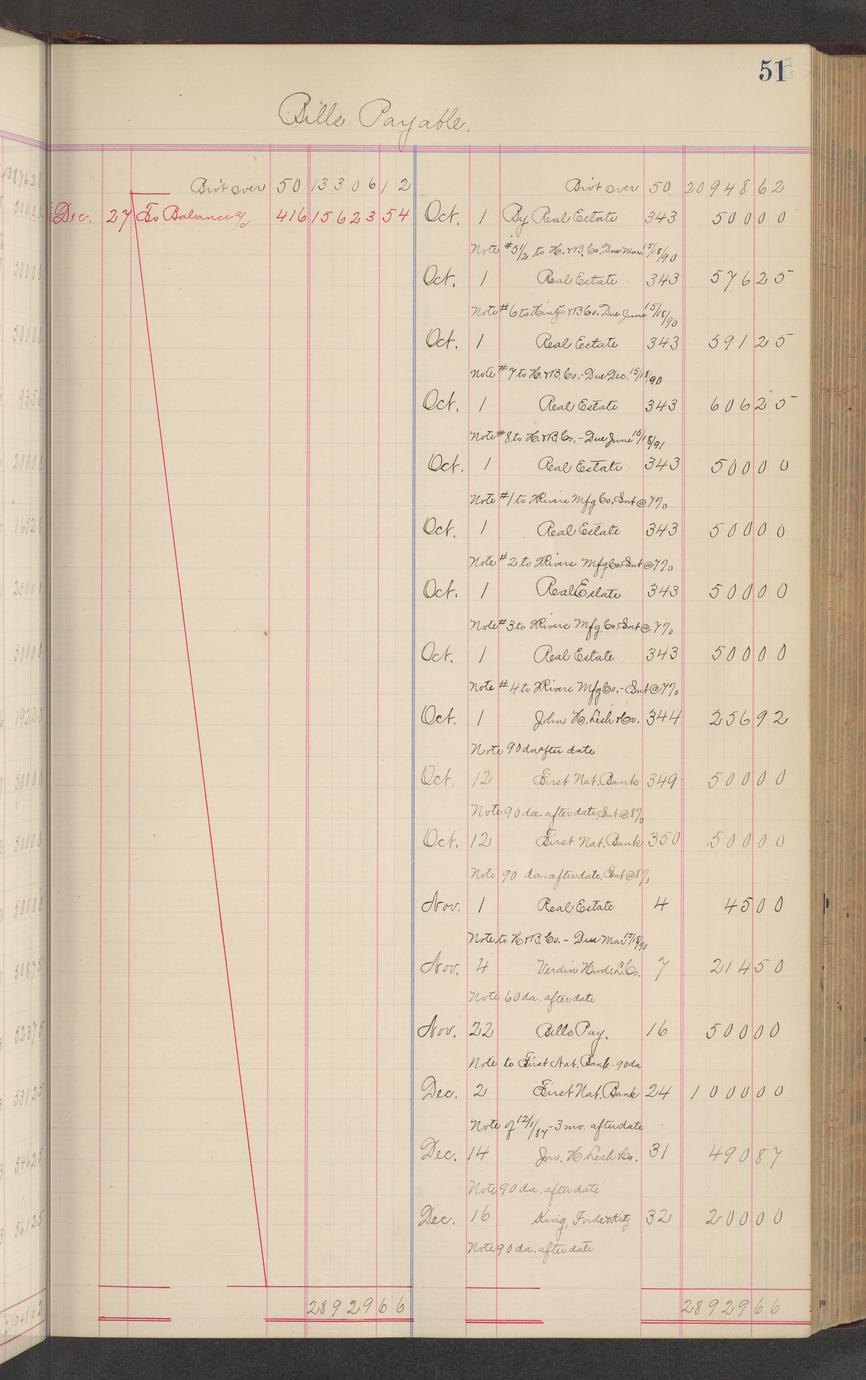 51
Bills Payable.
Bro't over 50 13306 12
Dec. 27 To Balance 416 15623 54
28929 66
Bro't over 50 20948 62
Oct. 1 By Real Estate 343 500 00
Note #5½ to H. & B. Co. Due Mar. 15/18/90
Oct. 1 Real Estate 343 576 25
Note #6 to & B Co. Due June 15/18/90
Oct. 1 Real Estate 343 591 25
Note #7 to H. & B. Co. - Due Dec. 15/18/90
Oct. 1 Real Estate 343 606 25
Note #8 to H. & B. Co. - Due June 15/18/91
Oct. 1 Real Estate 343 500 00
Note #1 to Mfg Co. Int @ 7%
Oct. 1 Real Estate 343 500 00
Note #2 to Mfg Co. Int @ 7%
Oct. 1 Real Estate 343 500 00
Note #3 to Mfg Co. Int @ 7%
Oct. 1 Real Estate 343 500 00
Note #4 to Mfg Co. - Int @ 7%
Oct. 1 John H. & Co. 344 256 92
Note 90 da after date
Oct. 12 First Nat. Bank 349 500 00
Note 90 da. after date Int @ 8%
Oct. 12 First Nat. Bank 350 500 00
Note 90 da. after date, Int @ 8%
Nov. 1 Real Estate 4 45 00
Note to H & B. Co. - Due Mar 15/18/90
Nov. 4 Verdin Co. 7 214 50
Note 60 da. after date
Nov. 22 Bills Pay. 16 500 00
Note to First Nat. Bank - 90 da
Dec. 2 First Nat. Bank 24 1000 00
Note of 12/1/89 - 3 mo. after date
Dec. 14 Jno. H. Co. 31 490 87
Note 90 da. after date
Dec. 16 King, 32 200 00
Note 90 da. after date
28929 66